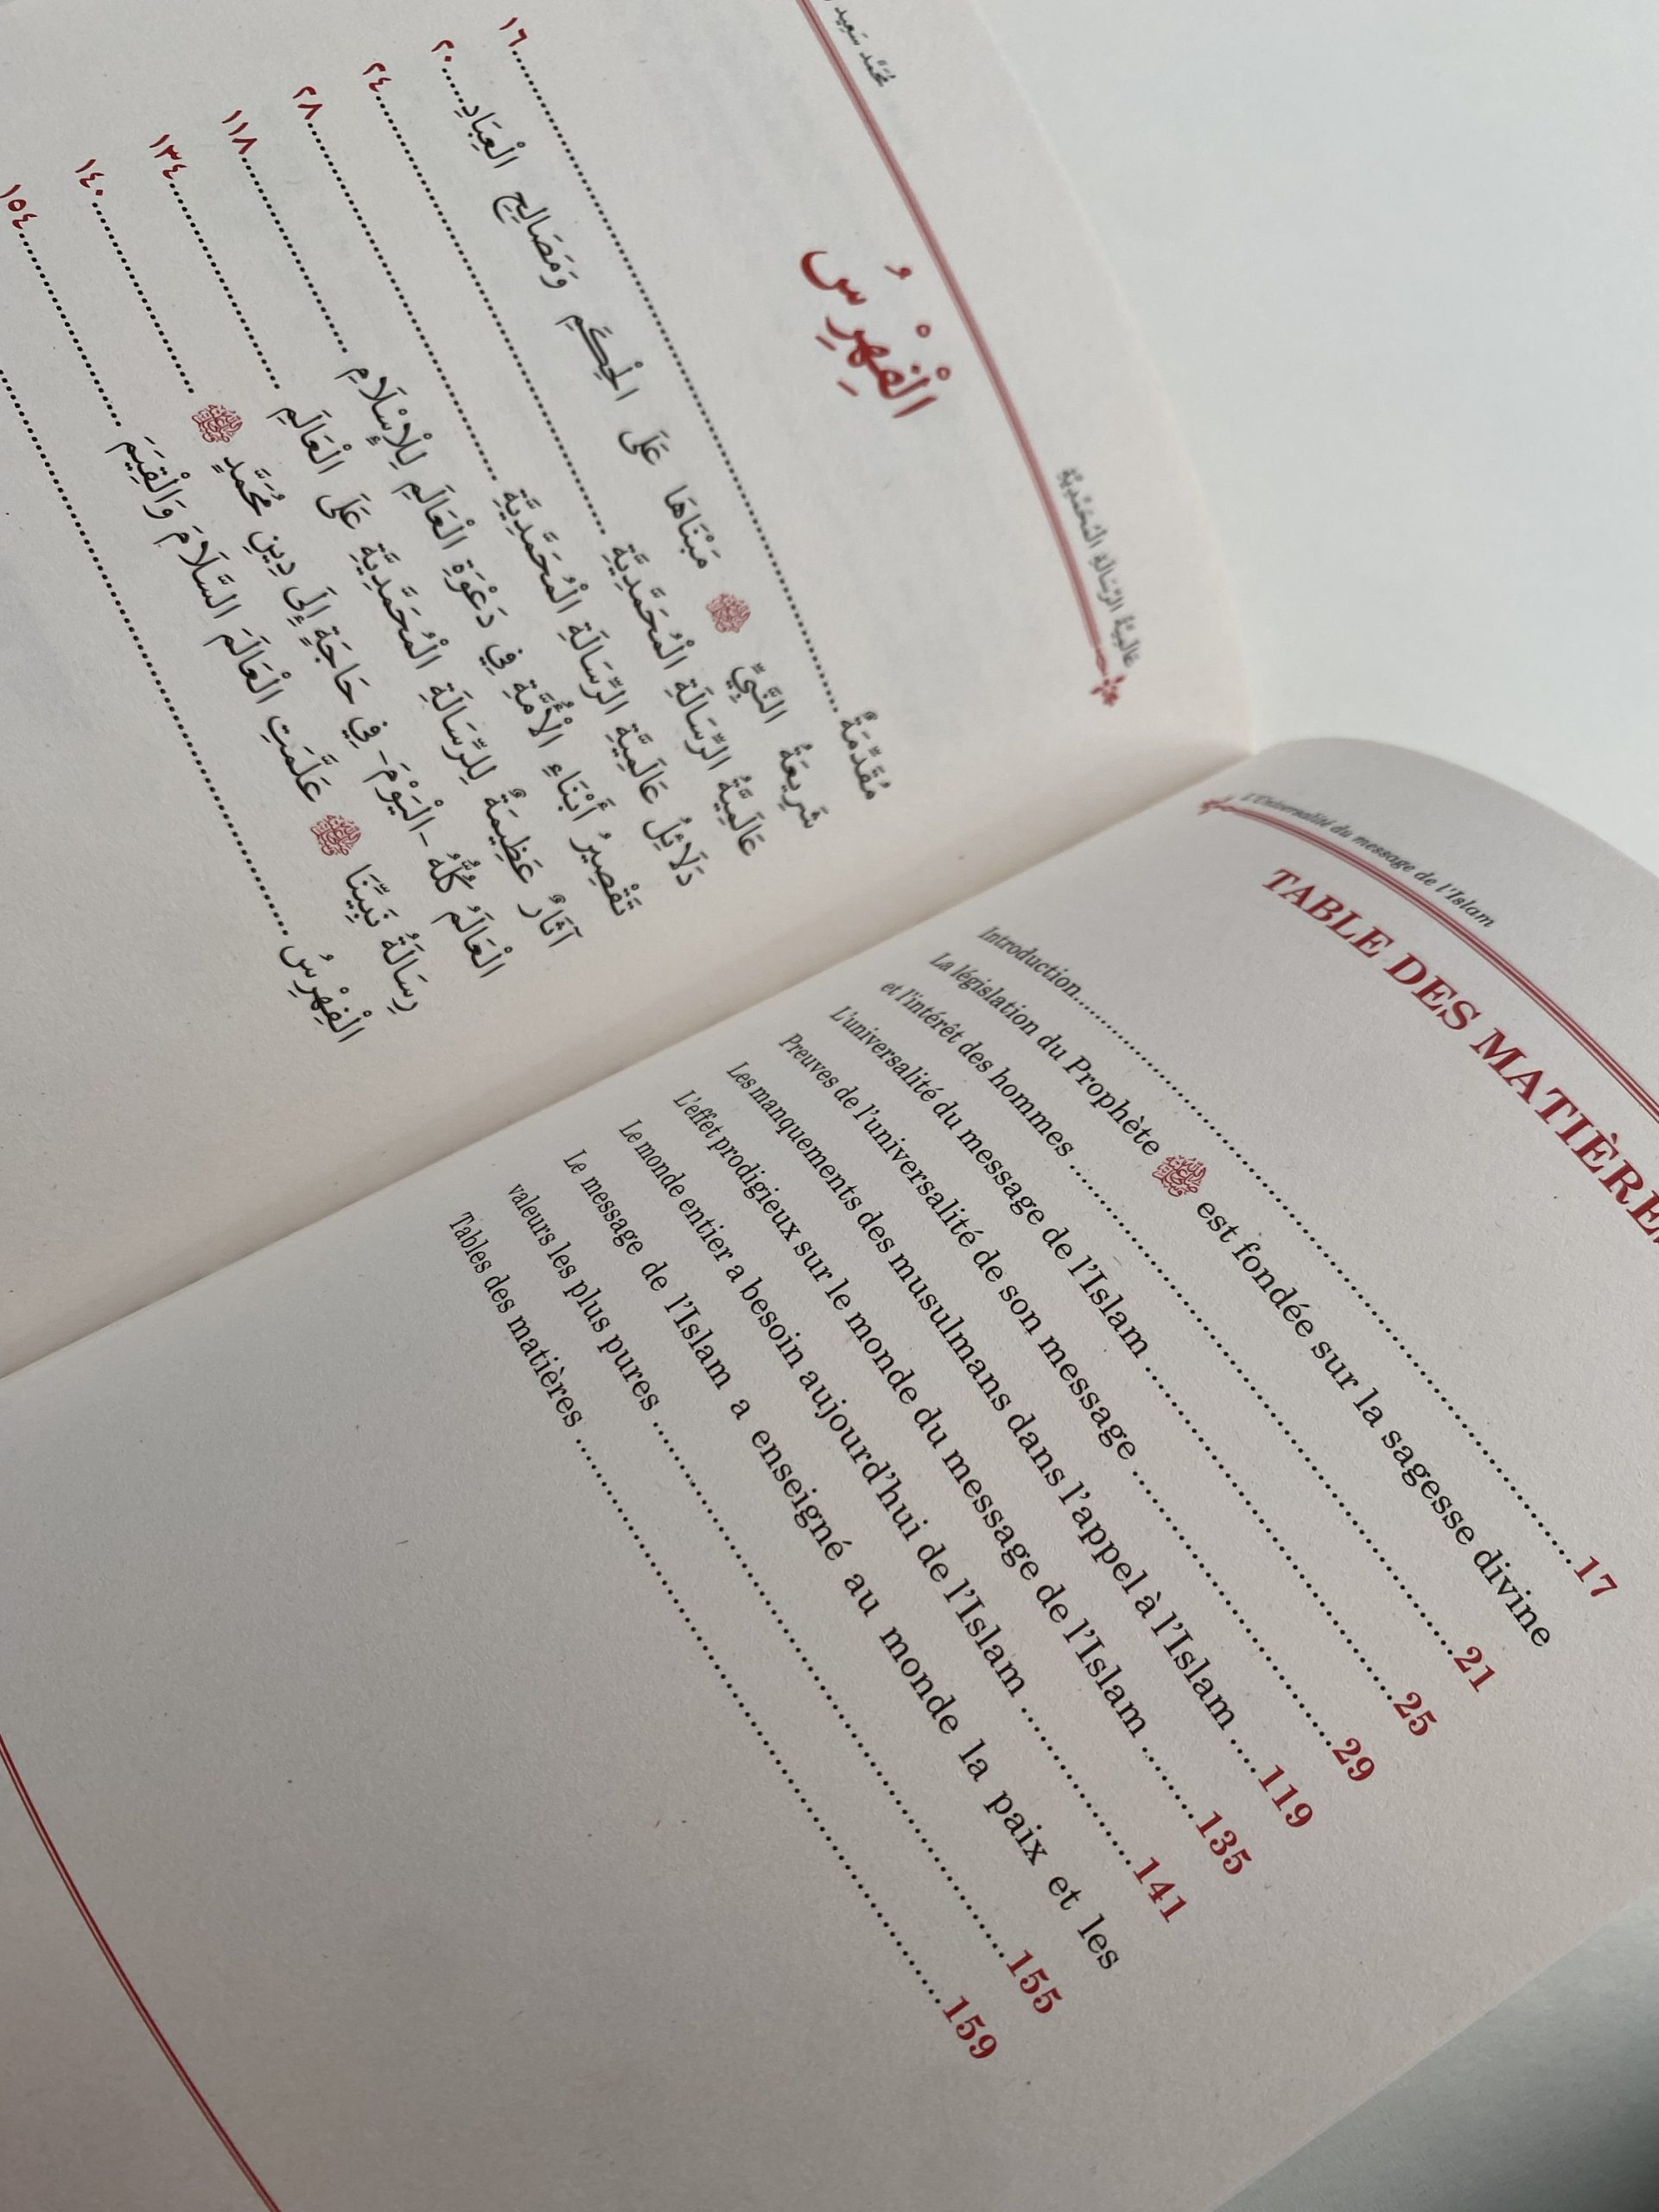 مُحَمَّد سَعِيد
عَالَمِيَّةُ الرِّسَالَةِ الْمُحَمَّدِيَّةِ
الْفِهْرِسُ
مُقَدِّمَةٌ ........ ١٦
شَرِيعَةُ النَّبِيِّ ﷺ مَبْنَاهَا عَلَى الْحِكَمِ وَمَصَالِحِ الْعِبَادِ ..... ٢٠
عَالَمِيَّةُ الرِّسَالَةِ الْمُحَمَّدِيَّةِ ........ ٢٤
دَلَائِلُ عَالَمِيَّةِ الرِّسَالَةِ الْمُحَمَّدِيَّةِ ........ ٢٨
تَقْصِيرُ أَبْنَاءِ الْأُمَّةِ فِي دَعْوَةِ الْعَالَمِ لِلْإِسْلَامِ ........ ١١٨
آثَارٌ عَظِيمَةٌ لِلرِّسَالَةِ الْمُحَمَّدِيَّةِ عَلَى الْعَالَمِ ........ ١٣٤
الْعَالَمُ كُلُّهُ -الْيَوْمَ- فِي حَاجَةٍ إِلَى دِينِ مُحَمَّدٍ ﷺ ........ ١٤٠
رِسَالَةُ نَبِيِّنَا ﷺ عَلَّمَتِ الْعَالَمَ السَّلَامَ وَالْقِيَمَ ........ ١٥٤
الْفِهْرِسُ ........
L'Universalité du message de l'Islam
TABLE DES MATIÈRE
Introduction ........ 17
La législation du Prophète ﷺ est fondée sur la sagesse divine
et l'intérêt des hommes ........ 21
L'universalité du message de l'Islam ........ 25
Preuves de l'universalité de son message ........ 29
Les manquements des musulmans dans l'appel à l'Islam .... 119
L'effet prodigieux sur le monde du message de l'Islam ........ 135
Le monde entier a besoin aujourd'hui de l'Islam ........ 141
Le message de l'Islam a enseigné au monde la paix et les
valeurs les plus pures ........ 155
Tables des matières ........ 159